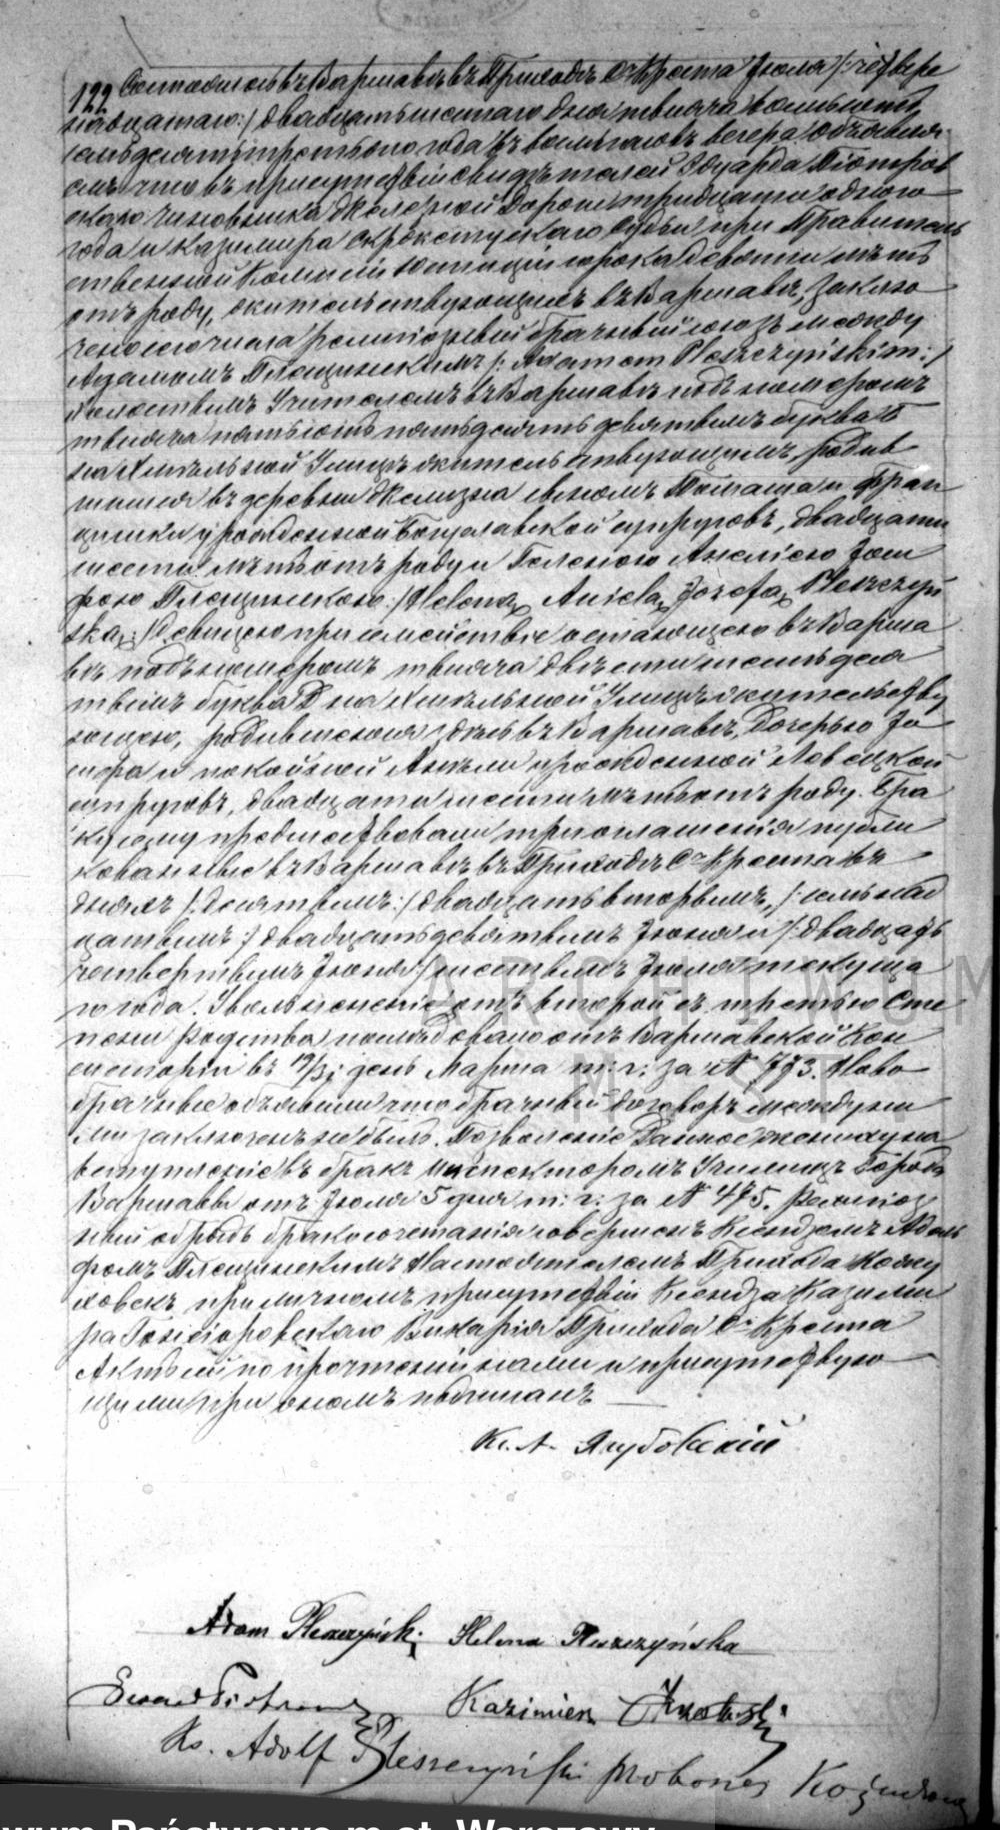 122. Состоялось въ Варшавѣ въ Приходѣ Св. Креста Іюля /:четвер
надцатаго:/ двадцать шестаго дня тысяча восемьсотъ
семьдесятъ третьяго года въ восемь часовъ вечера. Объявля
емъ что въ присутствіи свидѣтелей Эдуарда Піотров
скаго чиновника Желѣзной Дороги тридцати одного
года и Казимира судьи при Правитель
ственной Комисіи Юстиціи сорока девяти лѣтъ
отъ роду, жительствующихъ въ Варшавѣ, заклю
чено сего числа религіозный брачный союзъ между
Адамомъ Плещинскимъ /: Adamem Pleszczyńskim:/
холостымъ Учителемъ въ Варшавѣ подъ номеромъ
тысяча пятьсотъ пятьдесятъ девятымъ буква
на Хмѣльной Улицѣ жительствующимъ, родив
шимся въ деревни сыномъ Томаша и Фран
цишки урожденной Богуславской супруговъ, двадцати
шести лѣтъ отъ роду и Геленою Анелею Іозе
фою Плещинскою /:Heleną Anielą Józefą Pleszczyń
ską:/ дѣвицею при семействѣ остающеюся въ Варша
вѣ подъ номеромъ тысяча двѣсти шестьдеся
тымъ буква D на Хмѣльной Улицѣ жительству
ющею, родившеюся здѣсь въ Варшавѣ, дочерью
и покойной Анели урожденной
супруговъ, двадцати шести лѣтъ отъ роду. Бра
ку сему предшествовали три оглашенія публи
кованные въ Варшавѣ въ Приходѣ Св. Креста въ
дняхъ /:десятымъ:/ двадцать вторымъ, /:семьнад
цатымъ:/ двадцать девятымъ Іюня и /:двадцать
четвертымъ Іюня:/ шестымъ Іюля текуща
го года. Увольненіе отъ второй съ третью Сте
пени родства послѣдовало отъ Варшавской Кон
систоріи въ 19/31 день Марта т: г: за № 773. Ново
брачные объявили что брачный договоръ между ни
ми заключенъ не былъ. Позволеніе данное жениху на
вступленіе въ бракъ инспекторомъ Училищъ Города
Варшавы отъ Іюля 5 дня т: г: за № 475. Религіоз
ный обрядъ бракосочетанія совершенъ Ксендзомъ Адоль
фомъ Плещинскимъ Настоятелемъ Прихода Кожу
ховекъ при личномъ присутствіи Ксендза Казими
ра Викарія Прихода Св. Креста
Актъ сей по прочтеніи нами и присутствую
щими при ономъ подписанъ
Кс. А. Якубовскій
Adam Pleszczyński Helena Pleszczyńska
Kazimierz
Ks. Adolf Pleszczyński proboszcz
ARCHIWUM
M. ST.